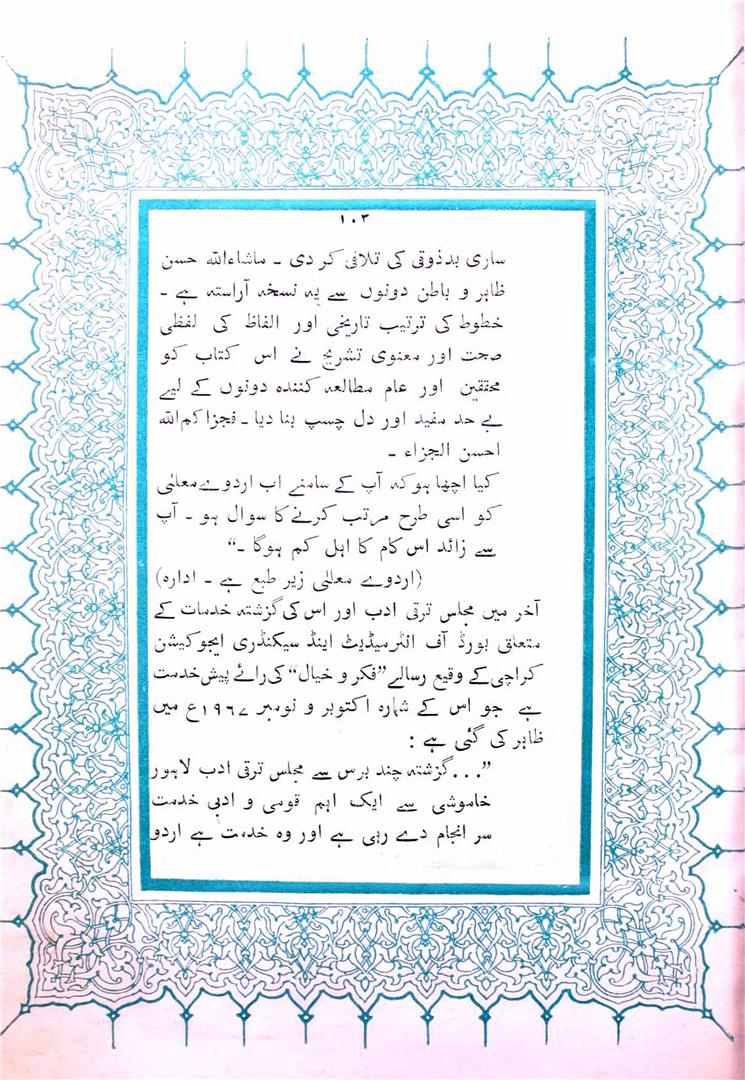 ۱۰۳
ساری بدذوقی کی تلافی کر دی ۔ ماشاءاللہ حسن
ظاہر و باطن دونوں سے یہ نسخہ آراستہ ہے ۔
خطوط کی ترتیب تاریخی اور الفاظ کی لفظی
صحت اور معنوی تشریح نے اس کتاب کو
محققین اور عام مطالعہ کنندہ دونوں کے لیے
بے حد مفید اور دل چسپ بنا دیا ۔ فجزاکم اللہ
احسن الجزاء ۔
کیا اچھا ہو کہ آپ کے سامنے اب اردوے معلیٰ
کو اسی طرح مرتب کرنے کا سوال ہو ۔ آپ
سے زائد اس کام کا اہل کم ہوگا ۔“
(اردوے معلیٰ زیر طبع ہے ۔ ادارہ)
آخر میں مجلس ترقی ادب اور اس کی گزشتہ خدمات کے
متعلق بورڈ آف انٹرمیڈیٹ اینڈ سیکنڈری ایجوکیشن
کراچی کے وقیع رسالے ”فکر و خیال“ کی رائے پیش خدمت
ہے جو اس کے شمارہ اکتوبر و نومبر ۱۹۶۷ع میں
ظاہر کی گئی ہے :
”...گزشتہ چند برس سے مجلس ترقی ادب لاہور
خاموشی سے ایک اہم قومی و ادبی خدمت
سر انجام دے رہی ہے اور وہ خدمت ہے اردو